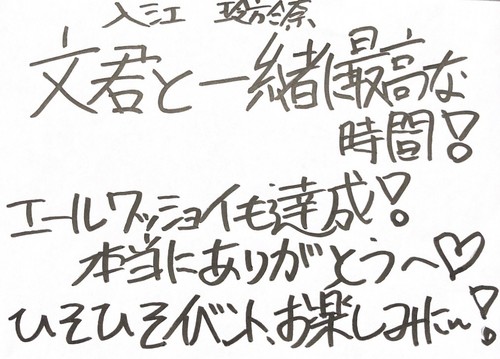 入江 玲於奈
文君と一緒に最高な
時間!
エールワッショイも達成!
本当にありがとうへ♡
ひそひそイベント、お楽しみにぃ!